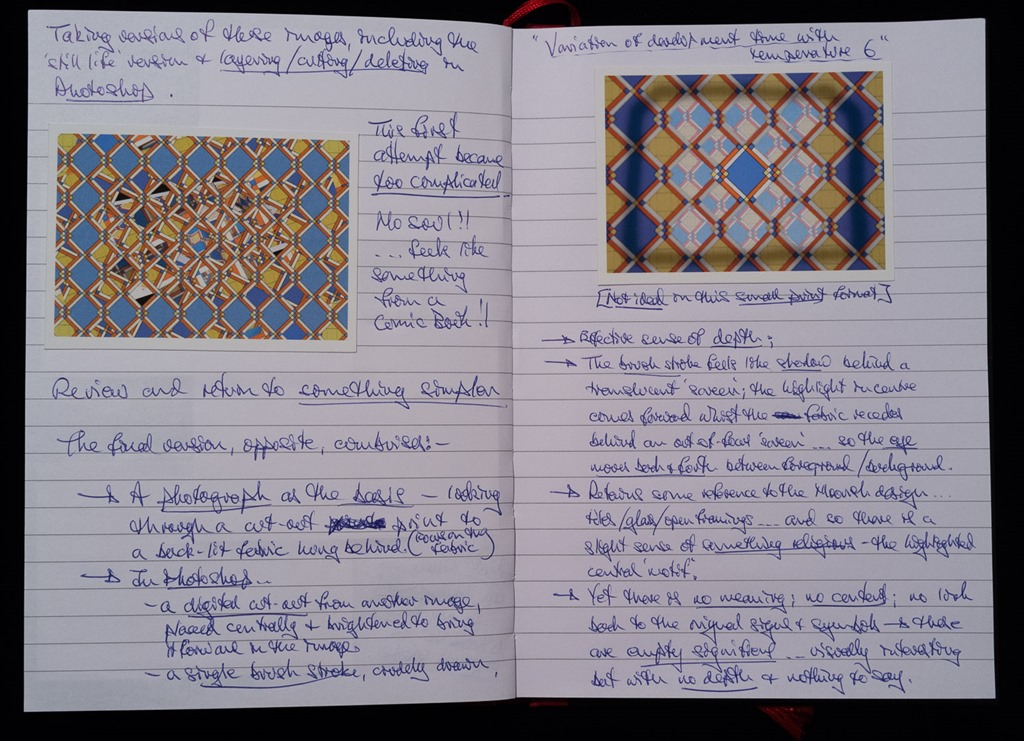 Taking versions of these images, including the
'still life' version & layering/cutting/deleting in
Photoshop.
This first
attempt became
too complicated
No soul!!
... feels like
something
from a
Comic Book!!
Review and return to something simpler
The final version, opposite, comprises:-
→ A photograph as the basis – looking
through a cut-out print to
a back-lit fabric hung behind. (
fabric)
→ In Photoshop...
- a digital cut-out from another image,
placed centrally & brightened to bring
it forward in the image
- a single brush stroke, crudely drawn,
"Variation of development time with
temperature 6"
[Not ideal in this small print format]
→ Effective sense of depth;
→ The brush stroke feels like shadow behind a
translucent 'screen'; the highlight in centre
comes forward whilst the fabric recedes
behind an out of focus 'screen' ... so the eye
moves back & forth between foreground/background.
→ Retains some reference to the Moorish design ...
tiles/glass/open framings .... and so there is a
slight sense of something religious - the highlighted
central 'motif'.
→ Yet there is no meaning; no content; no link
back to the original signs & symbols → these
are empty signifiers ... visually interesting
but with no depth & nothing to say.